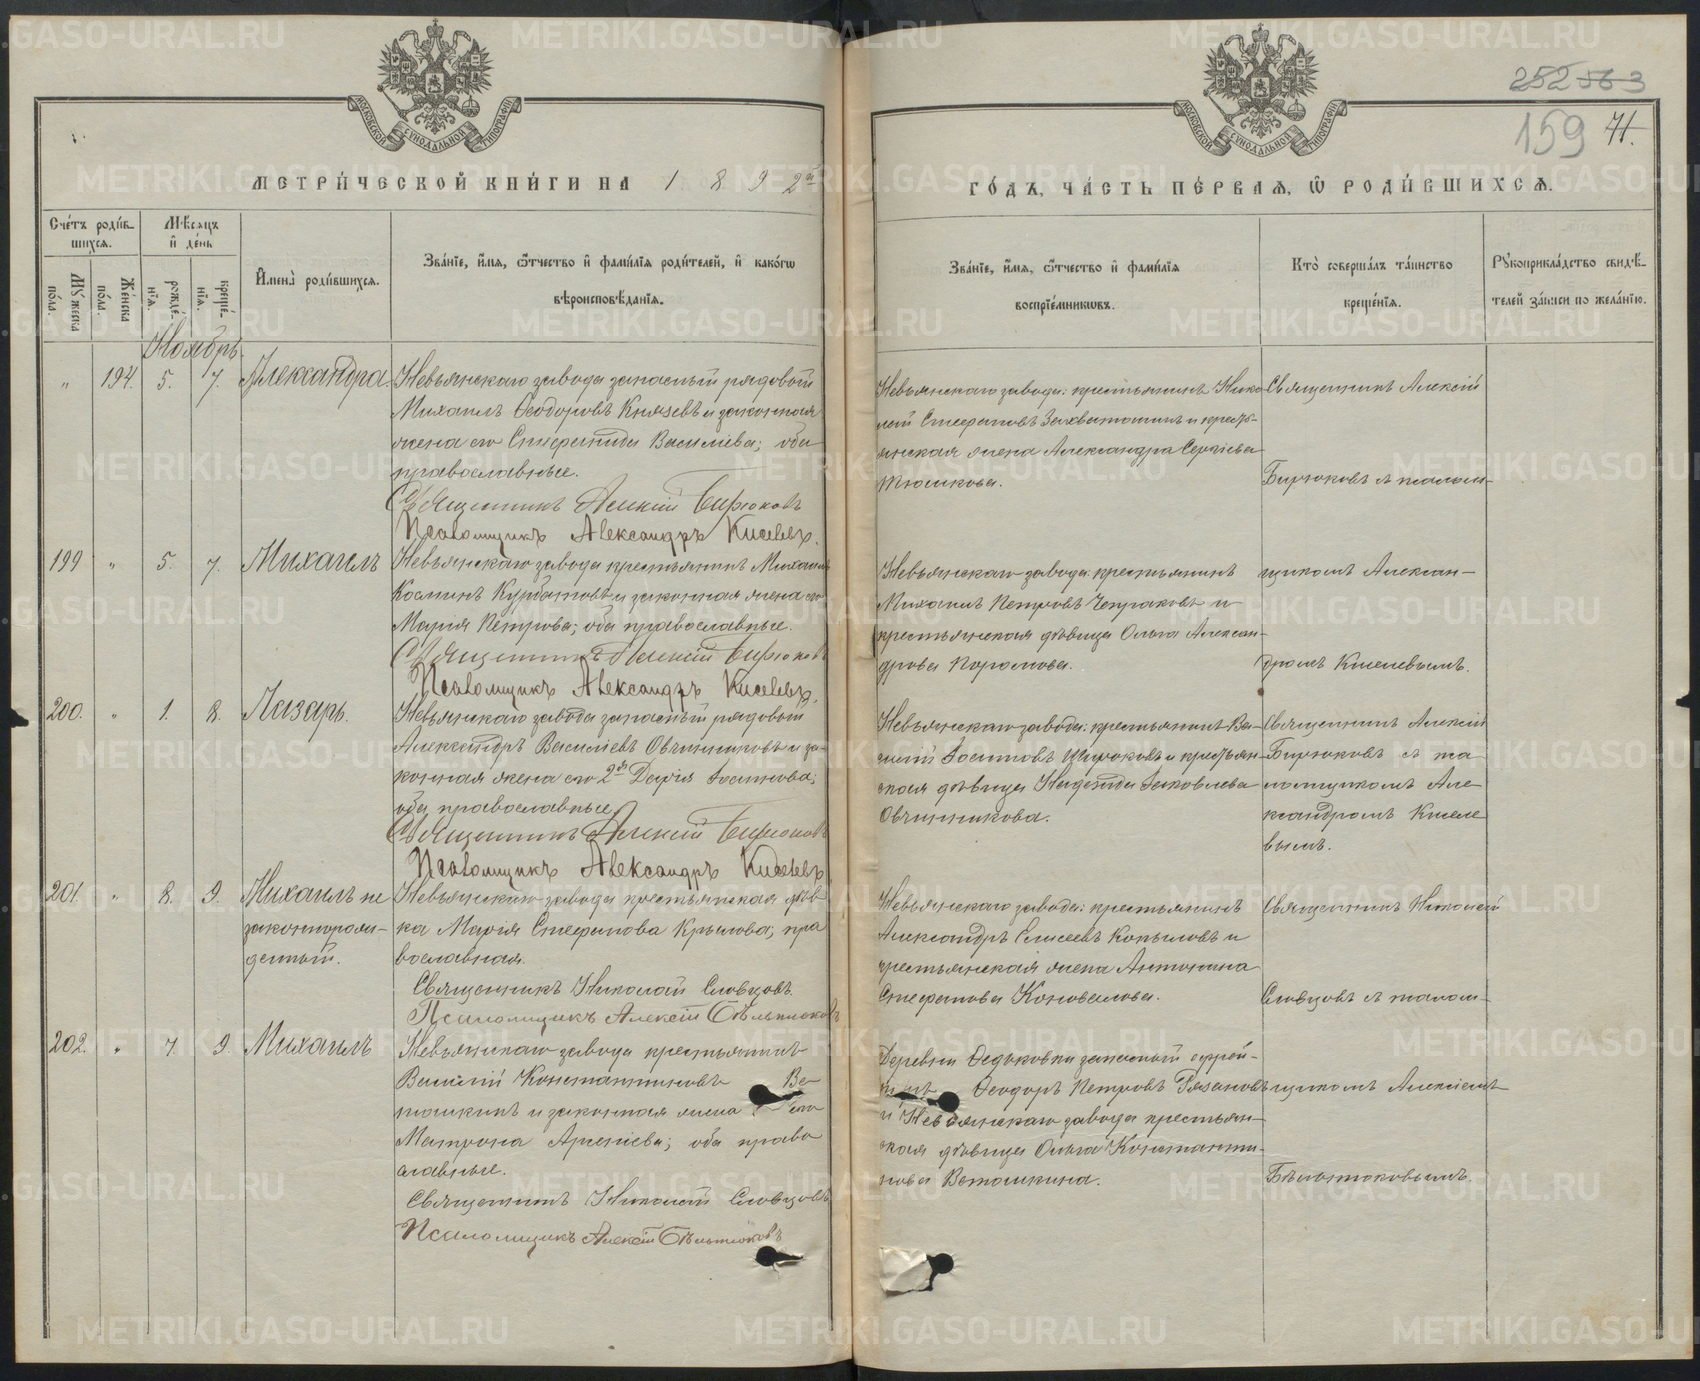 252 563
159 71.
МОСКОВСКОЙ СѴНОДАЛЬНОЙ ТИПОГРАФІИ
МОСКОВСКОЙ СѴНОДАЛЬНОЙ ТИПОГРАФІИ
МЕТРИ́ЧЕСКОЙ КНИ́ГИ НА 1 8 9 2й
ГО́ДЪ, ЧА́СТЬ ПЕ́РВАЯ, Ѡ РОДИ́ВШИХСЯ.
Сче́тъ роди́в-
шихся.
Му́жеска
по́ла.
Же́нска
по́ла.
Мѣ́сяцъ
и де́нь
рожде́-
нія.
креще́-
нія.
Имена̀ роди́вшихся.
Зва́ніе, и́мя, ѻ҆́тчество и фами́лія роди́телей, и како́гѡ
вѣроисповѣ́данія.
Зва́ніе, и́мя, ѻ҆́тчество и фами́лія
воспріе́мникѡвъ.
Кто̀ соверша́лъ та́инство
креще́нія.
Рꙋкоприкла́дство свидѣ́-
телей за́писи по жела́нію.
Ноябрь.
" 194. 5. 7. Александра
Невьянскаго завода запасный рядовой
Михаилъ Ѳеодоровъ Князевъ и законная
жена его Стефанида Васильева; оба
православные.
Священникъ Алексій Бирюковъ
Псаломщикъ Александръ Киселевъ.
Невьянскаго завода: крестьянинъ Нико
лай Стефановъ Захватошинъ и крестья-
янская жена Александра Сергіева
Тюликова.
Священникъ Алексій
Бирюковъ съ псалом-
199 " 5. 7. Михаилъ
Невьянскаго завода крестьянинъ Михаилъ
Косминъ Курбатовъ и законная жена его
Марія Петрова; оба православные.
Священникъ Алексій Бирюковъ
Псаломщикъ Александръ Киселевъ.
Невьянскаго завода: крестьянинъ
Михаилъ Петровъ Чепраковъ и
крестьянская дѣвица Ольга Алексан-
дрова Поромова.
щикомъ Алексан-
дромъ Киселевымъ.
200. " 1. 8. Лазарь.
Невьянскаго завода запасный рядовой
Александръ Васильевъ Овчинниковъ и за-
конная жена его 2й Дарія Іосипова;
оба православные.
Священникъ Алексій Бирюковъ
Псаломщикъ Александръ Киселевъ
Невьянскаго завода: крестьянинъ Ва-
силій Іосиповъ Широковъ и крестьян-
ская дѣвица Надежда Іаковлева
Овчинникова.
Священникъ Алексій
Бирюковъ съ пса
ломщикомъ Але
ксандромъ Киселе
вымъ.
201. " 8. 9. Михаилъ не
законнорож-
денный.
Невьянскаго завода крестьянская дѣв-
ка Марія Стефанова Крылова, пра
вославная.
Священникъ Николай Словцовъ.
Псаломщикъ Алексій Бѣльтюковъ
Невьянскаго завода: крестьянинъ
Александръ Елисеевъ Копыловъ и
крестьянская жена Антонина
Стефанова Коновалова.
Священникъ Николай
Словцовъ съ псалом-
202. " 7. 9. Михаилъ
Невьянскаго завода крестьянинъ
Василій Константиновъ Ве-
тошкинъ и законная жена его
Матрона Арсеніева; оба право
славные.
Священникъ Николай Словцовъ
Псаломщикъ Алексій Бѣльтюковъ
Деревни Ѳедьковки запасный ефрей-
Ѳеодоръ Петровъ Рязановъ
и Невьянскаго завода крестьян-
ская дѣвица Ольга Константи-
нова Ветошкина.
щикомъ Алексіемъ
Бѣльтюковымъ.
METRIKI.GASO-URAL.RU